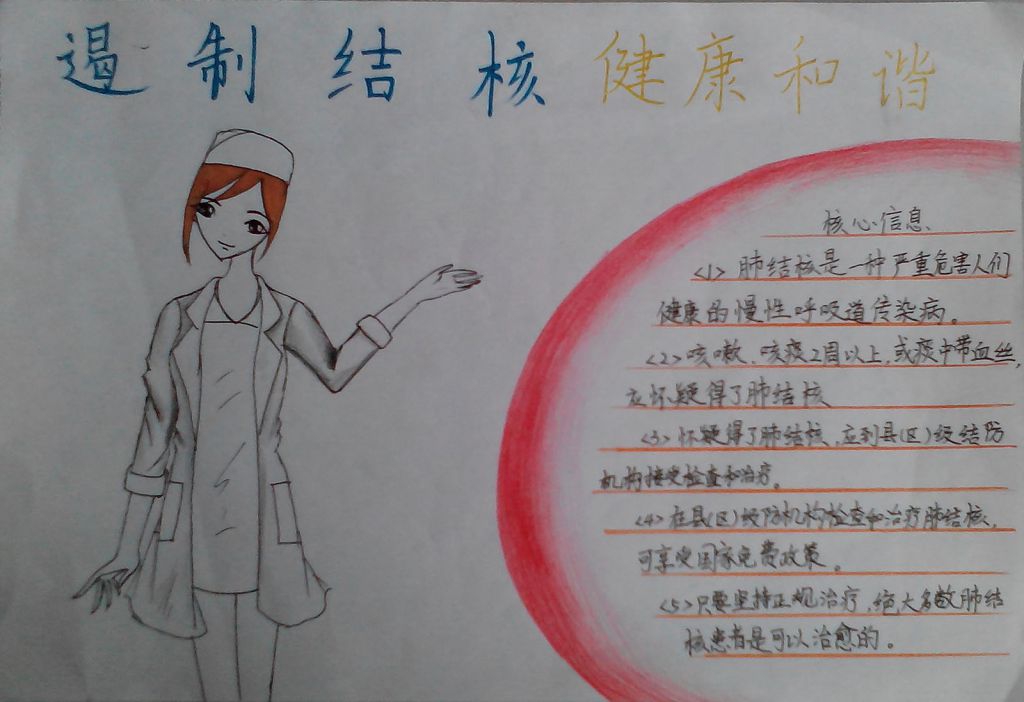 遏制结核健康和谐
核心信息
<1>肺结核是一种严重危害人们
健康的慢性呼吸道传染病。
<2>咳嗽、咳痰2周以上,或痰中带血丝,
应怀疑得了肺结核
<3>怀疑得了肺结核,应到县(区)级结防
机构接受检查和治疗。
<4>在县(区)级防机构检查和治疗肺结核,
可享受国家免费政策。
<5>只要坚持正规治疗,绝大多数肺结
核患者是可以治愈的。